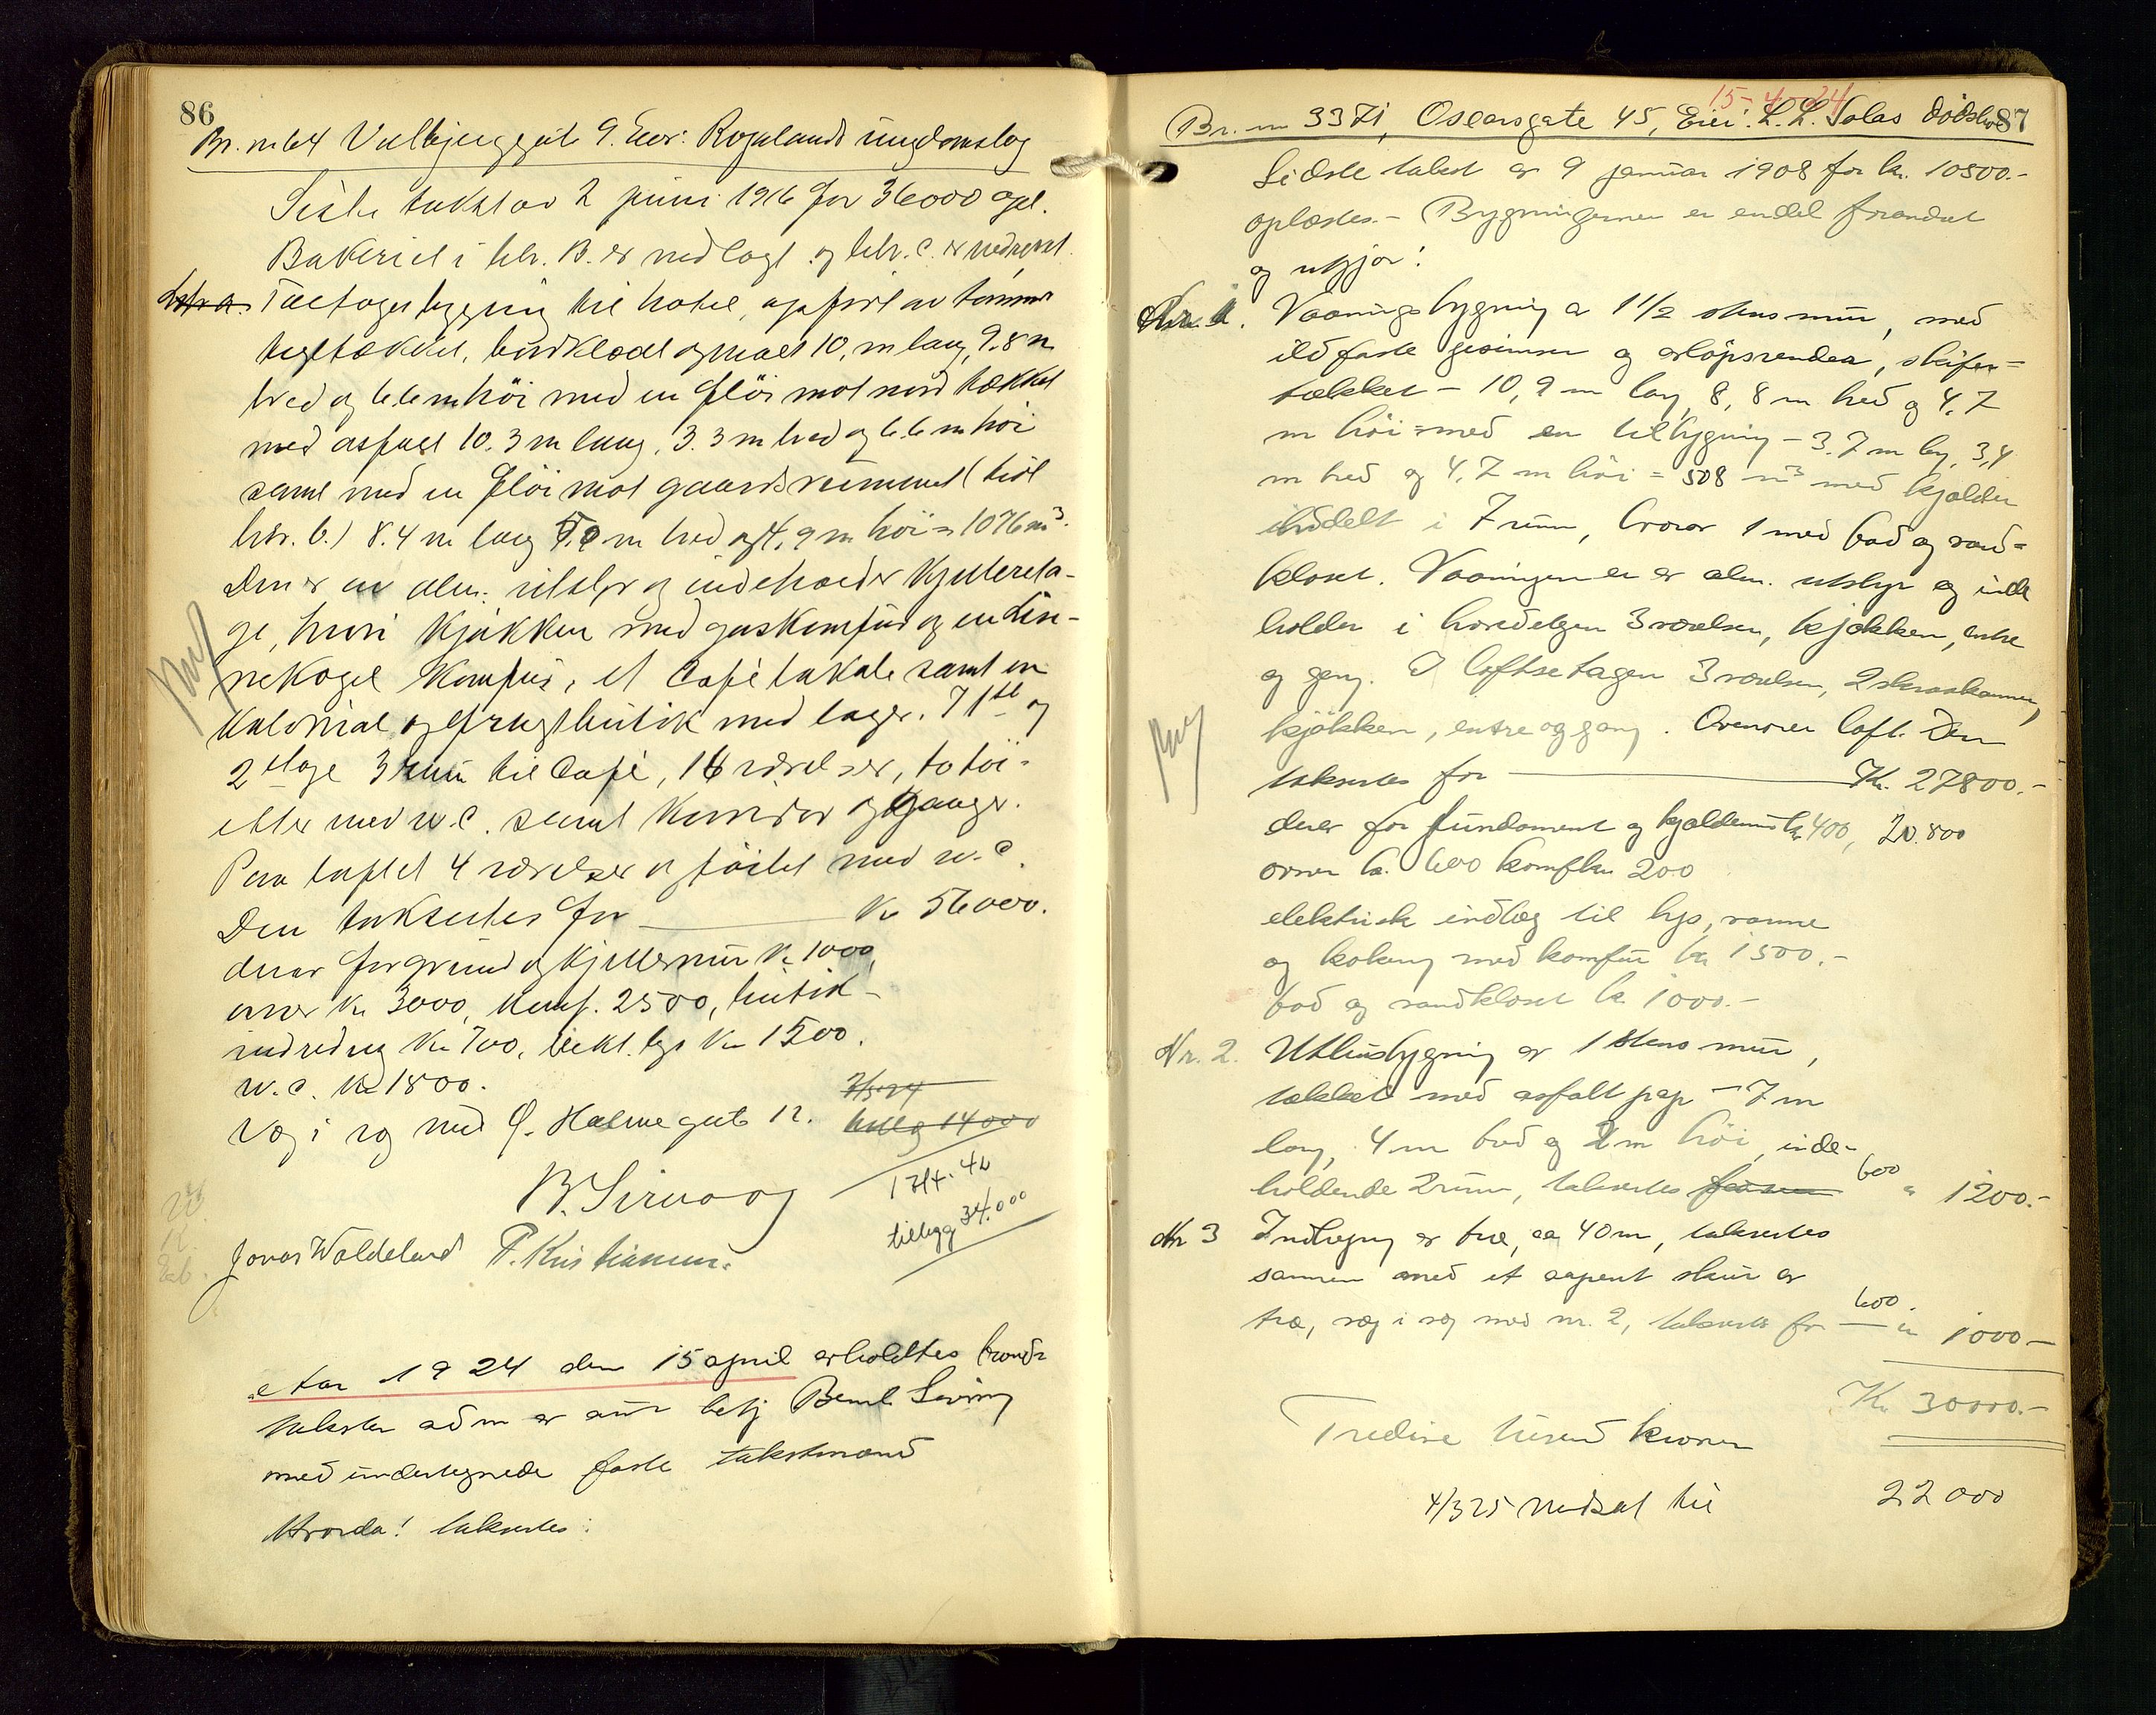 86
Br. nr 64 Valbjerggate 9. Eier: Rogalands ungdomslag
Siste takst av 2 juni 1916 for 36000 opl.
Bakeriet i litr. B. er nedlagt og litr. C. er nedrevet.
Litr a. Toetages bygning til hotel, opført av tømmer
tegltækket, bordklædt og malt 10, m lang, 9.8 m
bred og 6.6 m høi med en fløi mot nord tækket
med asfalt 10.3 m lang, 3.3 m bred og 6.6 m høi
samt med en fløi mot gaardsrummet (tidl
litr. b.) 8.4 m lang m bred og 4.9 m høi = 1076 m³.
Den er av alm. utstyr og indeholder kjellereta-
ge, hvori kjøkken med gaskomfur og en
nekogel komfur, et Cafe lokale samt en
kolonial og frugtbutik med lager. I 1ste og
2 etage 3 rum til Cafe, 16 værelser, to toi-
letter med w.c. samt korridor og gange.
Paa loftet 4 værelser og toilet med w.c.
Den takseres for Kr 56000.
derav for grund og kjellermur kr 1000,
ovner kr 3000, komf. 2500, butik-
indredng kr 700, elekt. lys kr 1500.
w.c. kr 1800.
Væg i væg med Ø. Holmegate 12.
tillæg 14000
17/4-42
tillegg 34.000
B. Sirevaag
Jonas Waldeland P. Kristiansen.
Aar 1924 den 15 april avholdtes brand-
takster adm. av aut. betj Bernt Sevring
med undertegnede faste takstmænd
Hvorda! taksertes:
15-4-24
87
Br. nr 3371, Oscarsgate 45, Eier: L. L. Solas dødsbo
Sidste takst av 9 januar 1908 for kr. 10500.-
oplæstes.- Bygningerne er endel forandret
og utgjør:
Nr. 1. Vaaningsbygning av 1 1/2 stens mur, med
ildfaste gesimser og avløpsrender, skifer=
tækket - 10,9 m lang 8,8 m bred og 4,7
m høi = med en tilbygning - 3.7 m lg, 3,4
m bred og 4,7 m høi = 508 m³ med kjælder
inddelt i 7 rum, hvorav 1 med bad og vand=
kloset. Vaaningen er av alm. utstyr og inde
holder i hovedetagen 3 værelser, kjøkken, entre
og gang. I loftsetagen 3 værelser, 2 skraakammer,
kjøkken, entre og gang. Ovenover loft. Den
taksertes for Kr. 27800.-
derav for fundament og kjældermur kr 400, 20.800
ovner kr. 600 komfur 200
elektrisk indlæg til lys, varme
og kokeng med komfur kr 1500.-
bad og vandkloset kr. 1000.-
Nr. 2. Uthusbygning av 1 stens mur,
tækket med asfalt pap - 7 m
lang, 4 m bred og 2 m høi, inde-
holdende 2 rum, taksertes 600 " 1200.-
Nr 3 Indhegng av træ, ca 40 m, taksertes
sammen med et aapent skur av
træ, væg i væg med nr. 2, taksertes for 600. " 1000-
Kr. 30000.-
Tredive tusend kroner
4/3 25 nedsat til 22000